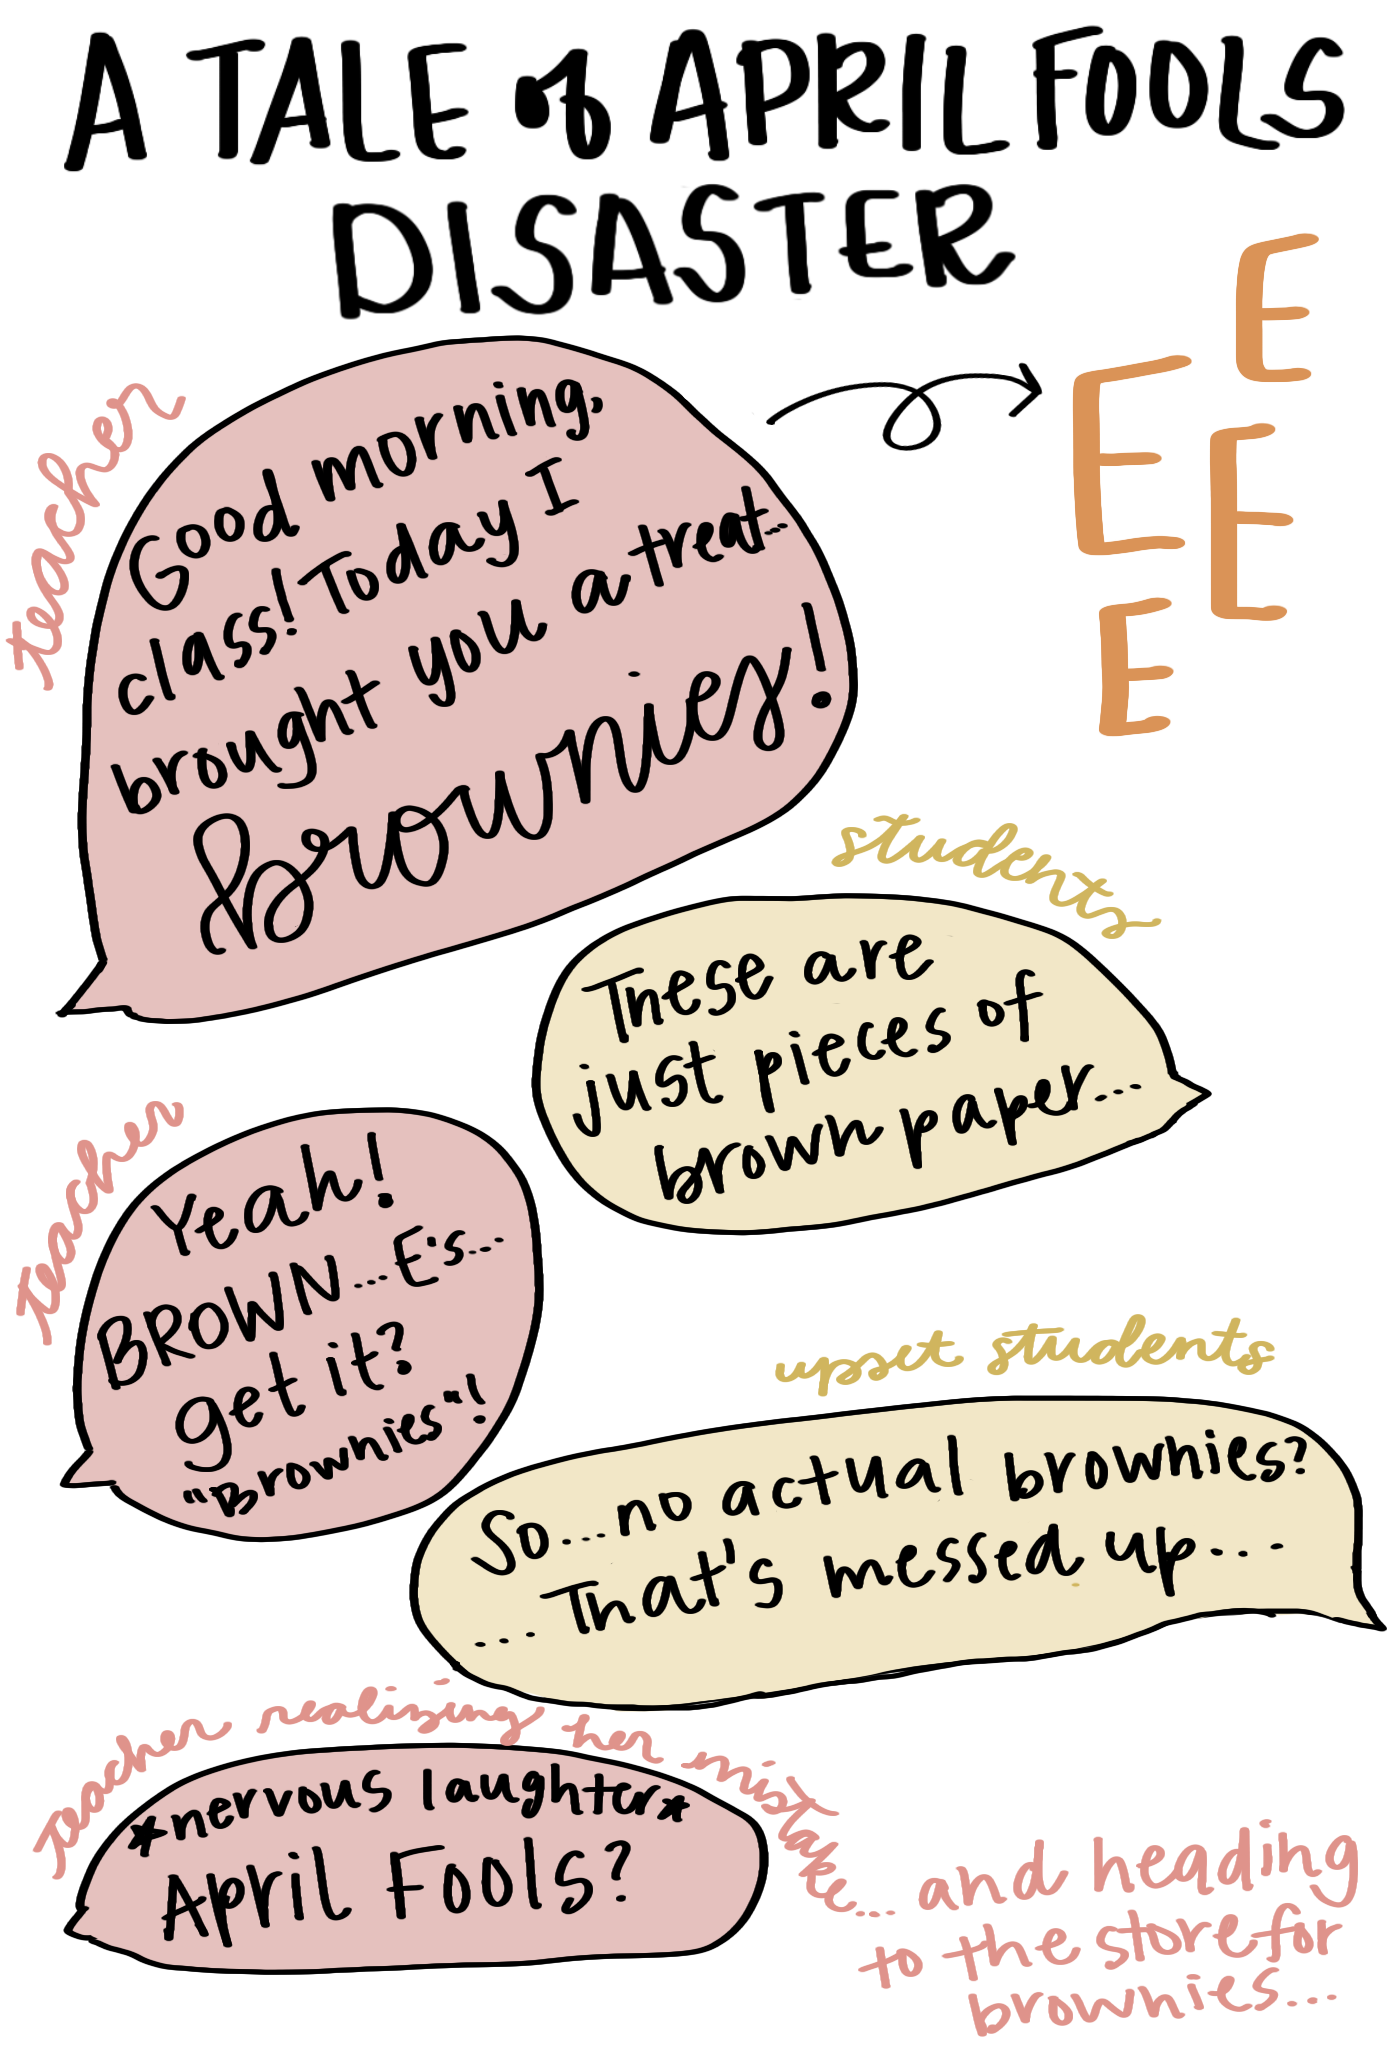 A TALE of APRIL FOOLS
DISASTER
teacher
Good morning,
class! Today I
brought you a treat...
brownies!
E
E
E
E
students
These are
just pieces of
brown paper...
teacher
Yeah!
BROWN...E's...
get it?
"Brownies"!
upset students
So...no actual brownies?
...That's messed up...
teacher realizing her mistake...
*nervous laughter*
April Fools?
and heading
to the store for
brownies...